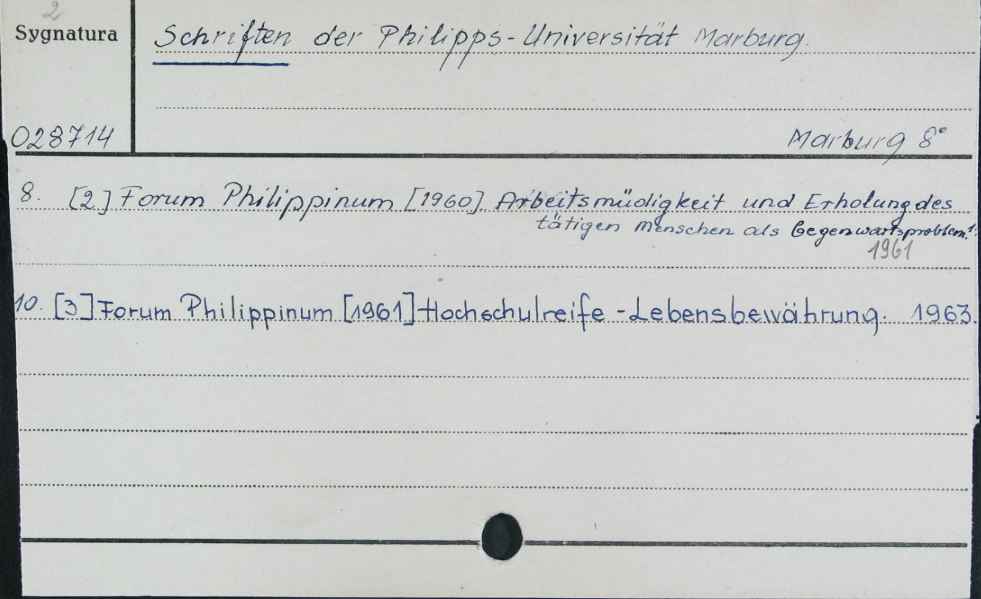 2
Sygnatura
Schriften der Philipps-Universität Marburg.
028714
Marburg 8°
8. [2] Forum Philippinum [1960]. Arbeitsmüdigkeit und Erholung des
tätigen Menschen als Gegenwartsproblem.
1961
10. [3] Forum Philippinum [1961] Hochschulreife - Lebensbewährung. 1963.